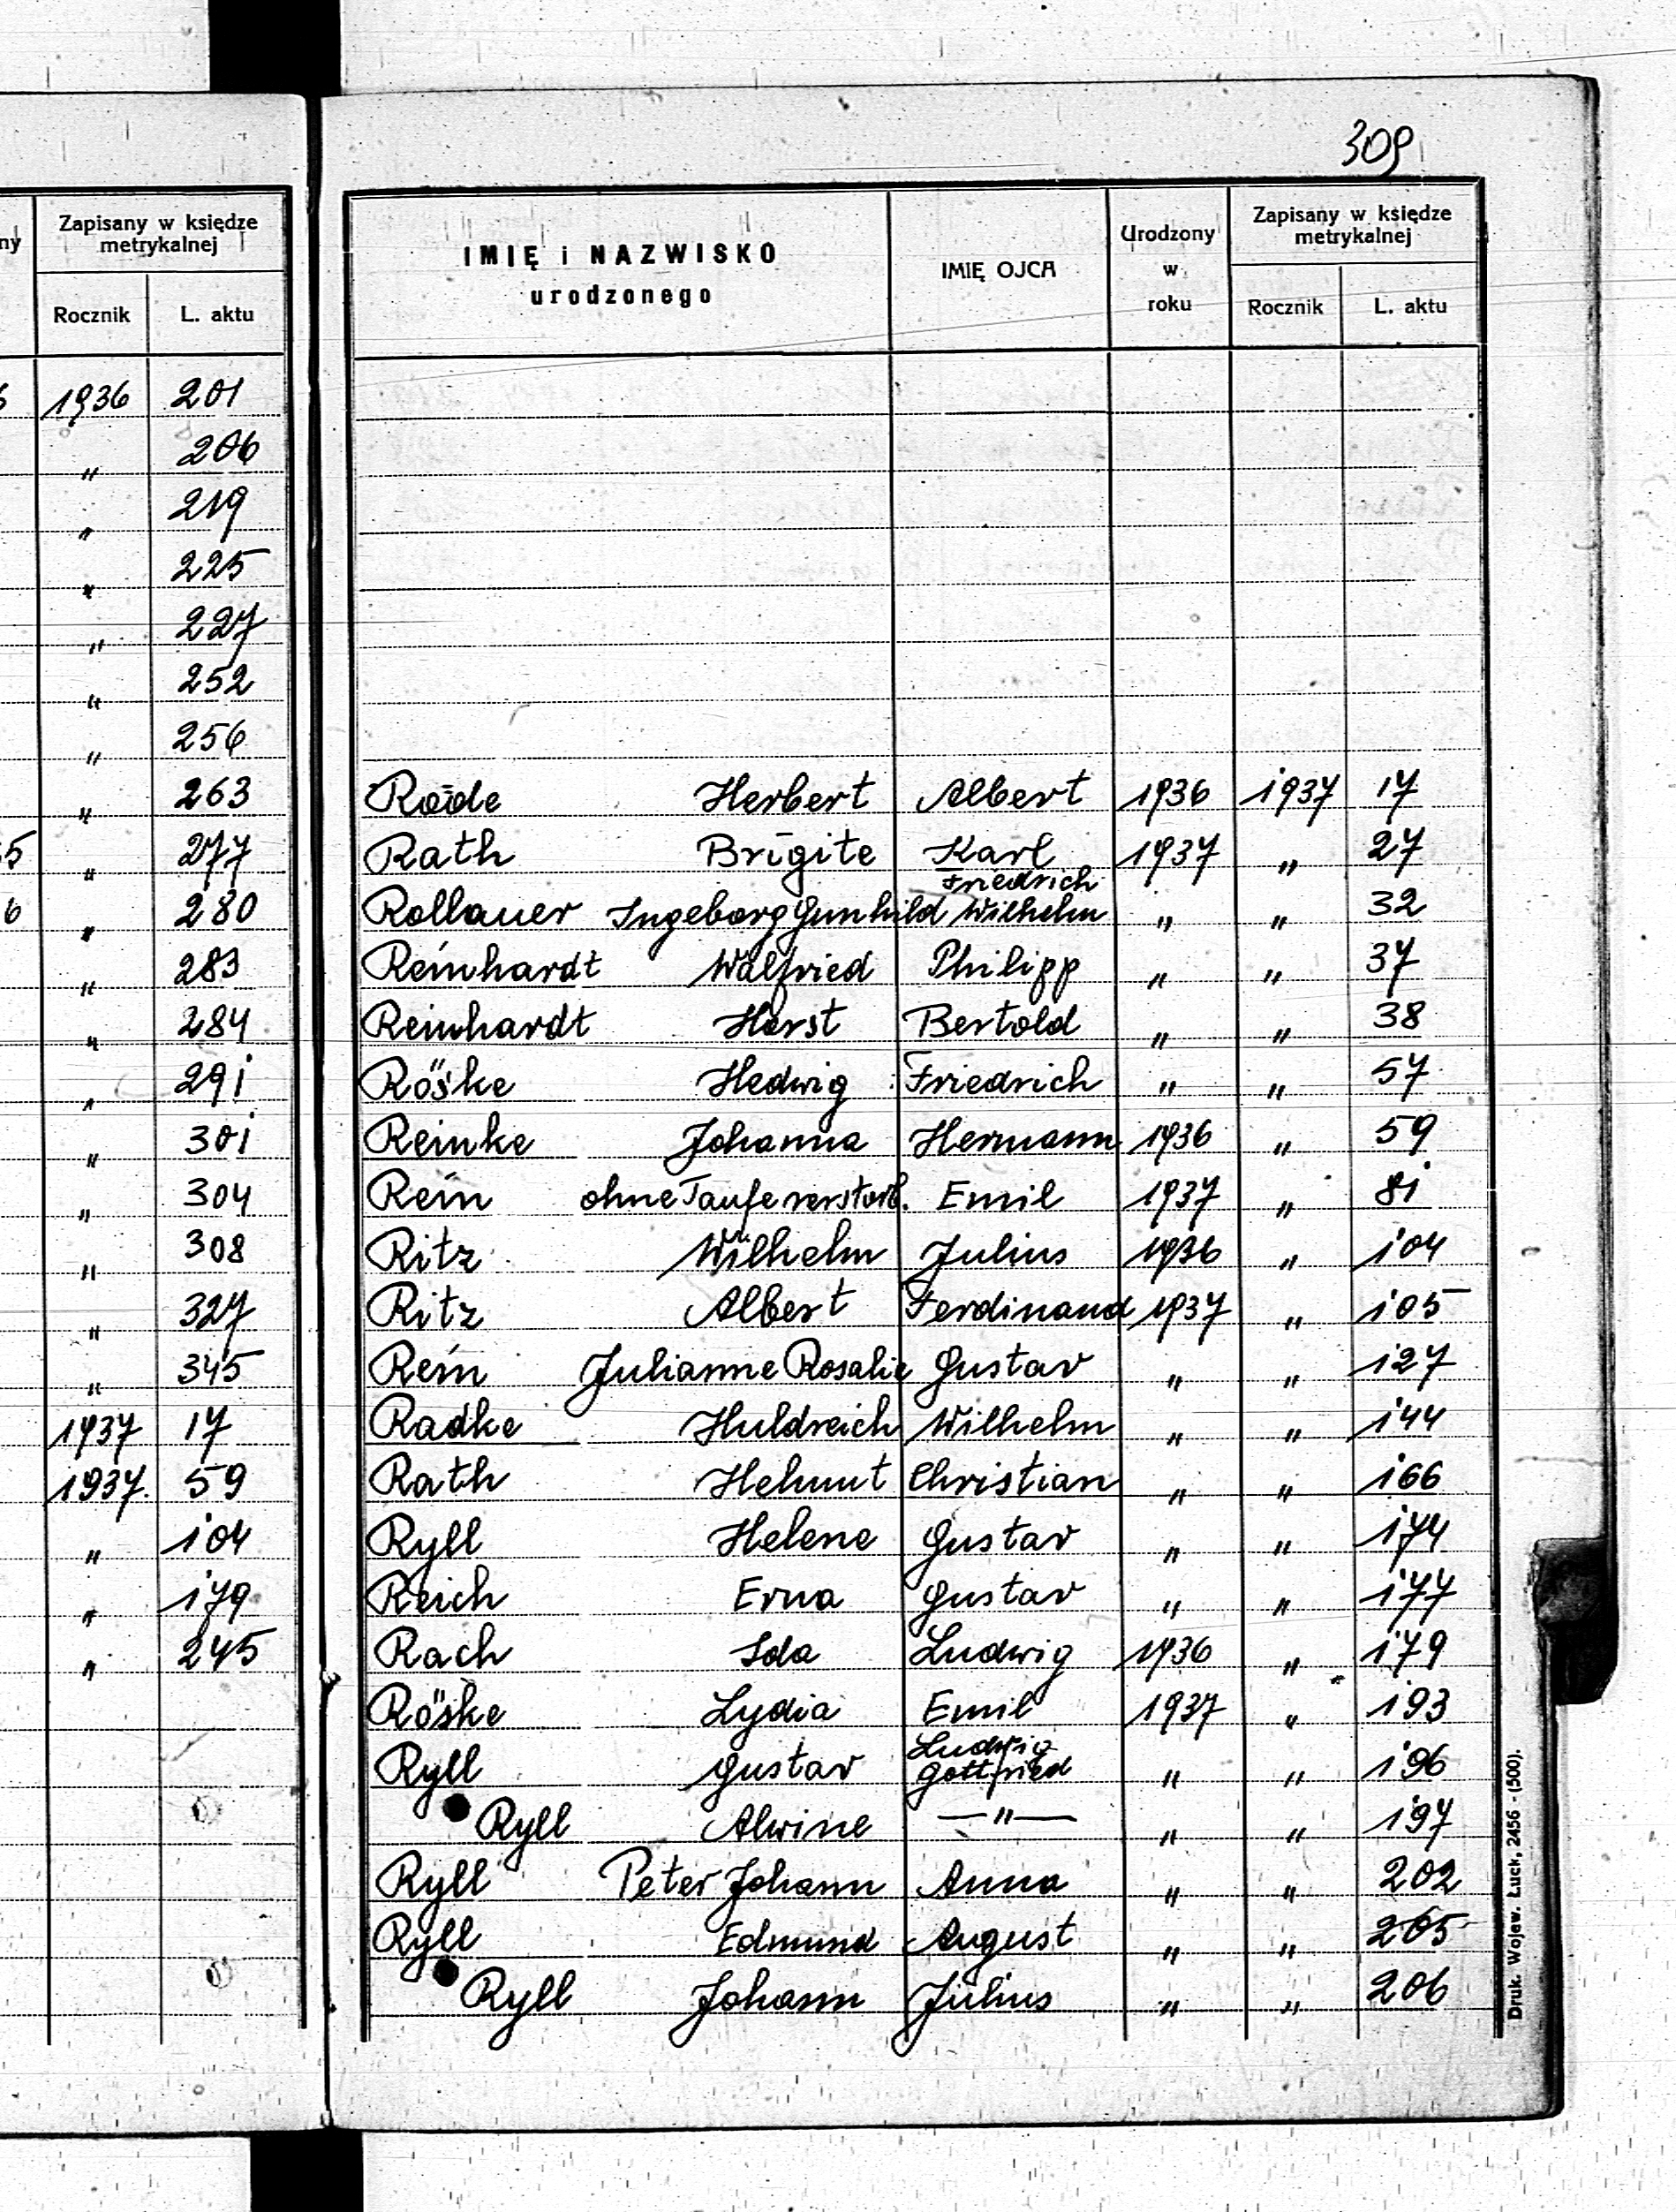 309
ny
Zapisany w księdze metrykalnej
Rocznik L. aktu
6 1936 201
" 206
" 219
" 225
" 227
" 252
" 256
" 263
5 " 277
6 " 280
" 283
" 284
" 291
" 301
" 304
" 308
" 327
" 345
1937 17
1937. 59
" 104
" 179
" 245
IMIĘ i NAZWISKO urodzonego
IMIĘ OJCA
Urodzony w roku
Zapisany w księdze metrykalnej
Rocznik L. aktu
Herbert Albert 1936 1937 17
Rath Brigite Karl 1937 " 27
Rollauer Ingeborg Gunhild Friedrich Wilhelm " " 32
Reinhardt Walfried Philipp " " 37
Reinhardt Horst Bertold " " 38
Röske Hedwig Friedrich " " 57
Reinke Johanna Hermann 1936 " 59
Rein ohne Taufe verstorb. Emil 1937 " 81
Ritz Wilhelm Julius 1936 " 104
Ritz Albert Ferdinand 1937 " 105
Rein Julianne Rosalie Gustav " " 127
Radke Huldreich Wilhelm " " 144
Rath Helmut Christian " " 166
Ryll Helene Gustav " " 174
Reich Erna Gustav " " 177
Rach Ida Ludwig 1936 " 179
Röske Lydia Emil 1937 " 193
Ryll Gustav Ludwig Gottfried " " 196
Ryll Alwine —"— " " 197
Ryll Peter Johann Anna " " 202
Ryll Edmund August " " 205
Ryll Johann Julius " " 206
Druk. Wojew. Łuck, 2456 - (500).